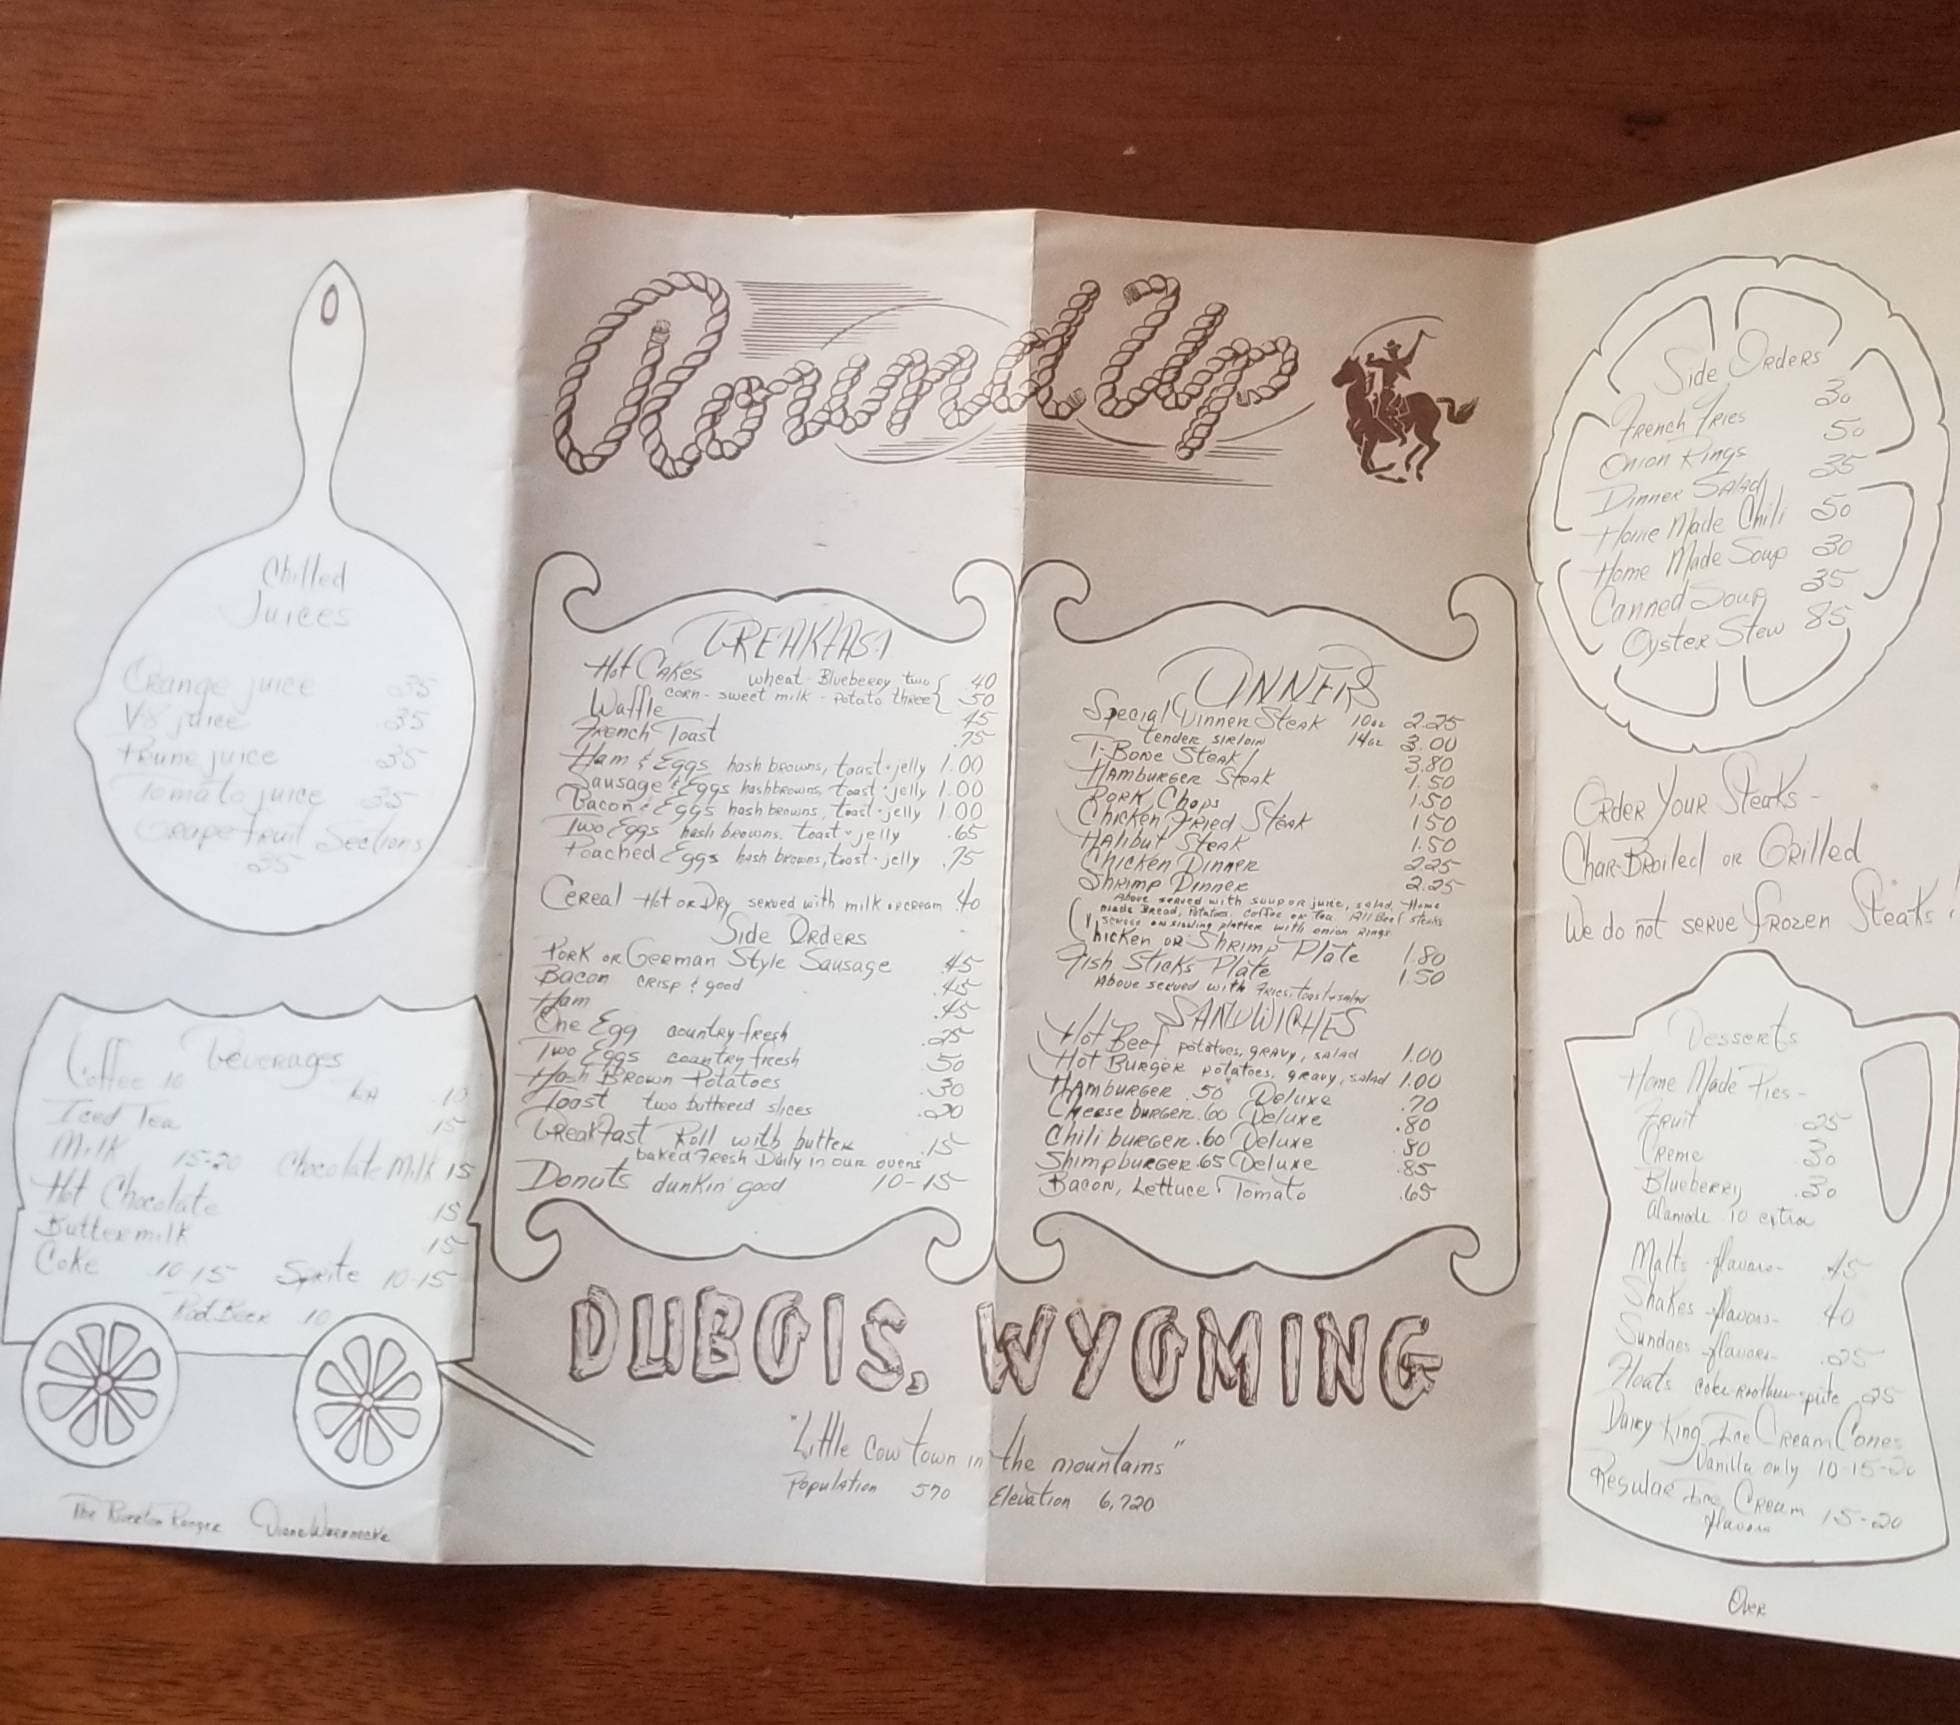 Chilled
Juices
Orange juice 35
V-8 juice .35
Prune juice 35
Tomato juice 35
Grapefruit Sections
35
Beverages
Coffee 10 Tea .10
Iced Tea 15
Milk 15-20 Chocolate Milk 15
Hot Chocolate 15
Buttermilk 15
Coke .10-15 Sprite 10-15
Root Beer 10
The Riverton Ranger Diane Warnecke
Round Up
BREAKFAST
Hot Cakes wheat - Blueberry two { 40
corn - sweet milk - potato three { 50
Waffle 45
French Toast .75
Ham & Eggs hash browns, toast - jelly 1.00
Sausage & Eggs hashbrowns, toast - jelly 1.00
Bacon & Eggs hash browns, toast - jelly 1.00
Two Eggs hash browns, toast - jelly .65
Poached Eggs hash browns, toast - jelly .75
Cereal Hot or Dry served with milk or cream .40
Side Orders
Pork or German Style Sausage .45
Bacon crisp & good .45
Ham .45
One Egg country fresh .25
Two Eggs country fresh .50
Hash Brown Potatoes .30
Toast two buttered slices .20
Breakfast Roll with butter .15
baked Fresh Daily in our ovens
Donuts dunkin' good 10-15
DINNERS
Special Dinner Steak 10oz 2.25
tender sirloin 14oz 3.00
T-Bone Steak 3.80
Hamburger Steak 1.50
Pork Chops 1.50
Chicken Fried Steak 1.50
Halibut Steak 1.50
Chicken Dinner 2.25
Shrimp Dinner 2.25
Above served with soup or juice, salad, Home
made Bread, Potatoes, Coffee or Tea All Beef steaks
served on sizzling platter with onion rings
Chicken or Shrimp Plate 1.80
Fish Sticks Plate 1.50
Above served with fries, toast & salad
SANDWICHES
Hot Beef potatoes, gravy, salad 1.00
Hot Burger potatoes, gravy, salad 1.00
Hamburger .50 Deluxe .70
Cheeseburger .60 Deluxe .80
Chiliburger .60 Deluxe .80
Shimpburger .65 Deluxe .85
Bacon, Lettuce Tomato .65
DUBOIS, WYOMING
"Little cow town in the mountains"
Population 570 Elevation 6,720
Side Orders
French Fries 30
Onion Rings 50
Dinner Salad 35
Home Made Chili 50
Home Made Soup 30
Canned Soup 35
Oyster Stew 85
Order Your Steaks -
Char-Broiled or Grilled
We do not serve frozen Steaks!
Desserts
Home Made Pies -
Fruit .25
Creme 30
Blueberry .30
Alamode .10 extra
Malts - flavors - .45
Shakes - flavors - 40
Sundaes - flavors - .25
Floats coke-rootbeer-sprite .25
Dairy King Ice Cream Cones
Vanilla only 10-15-20
Regular Ice Cream 15-20
flavors
Over